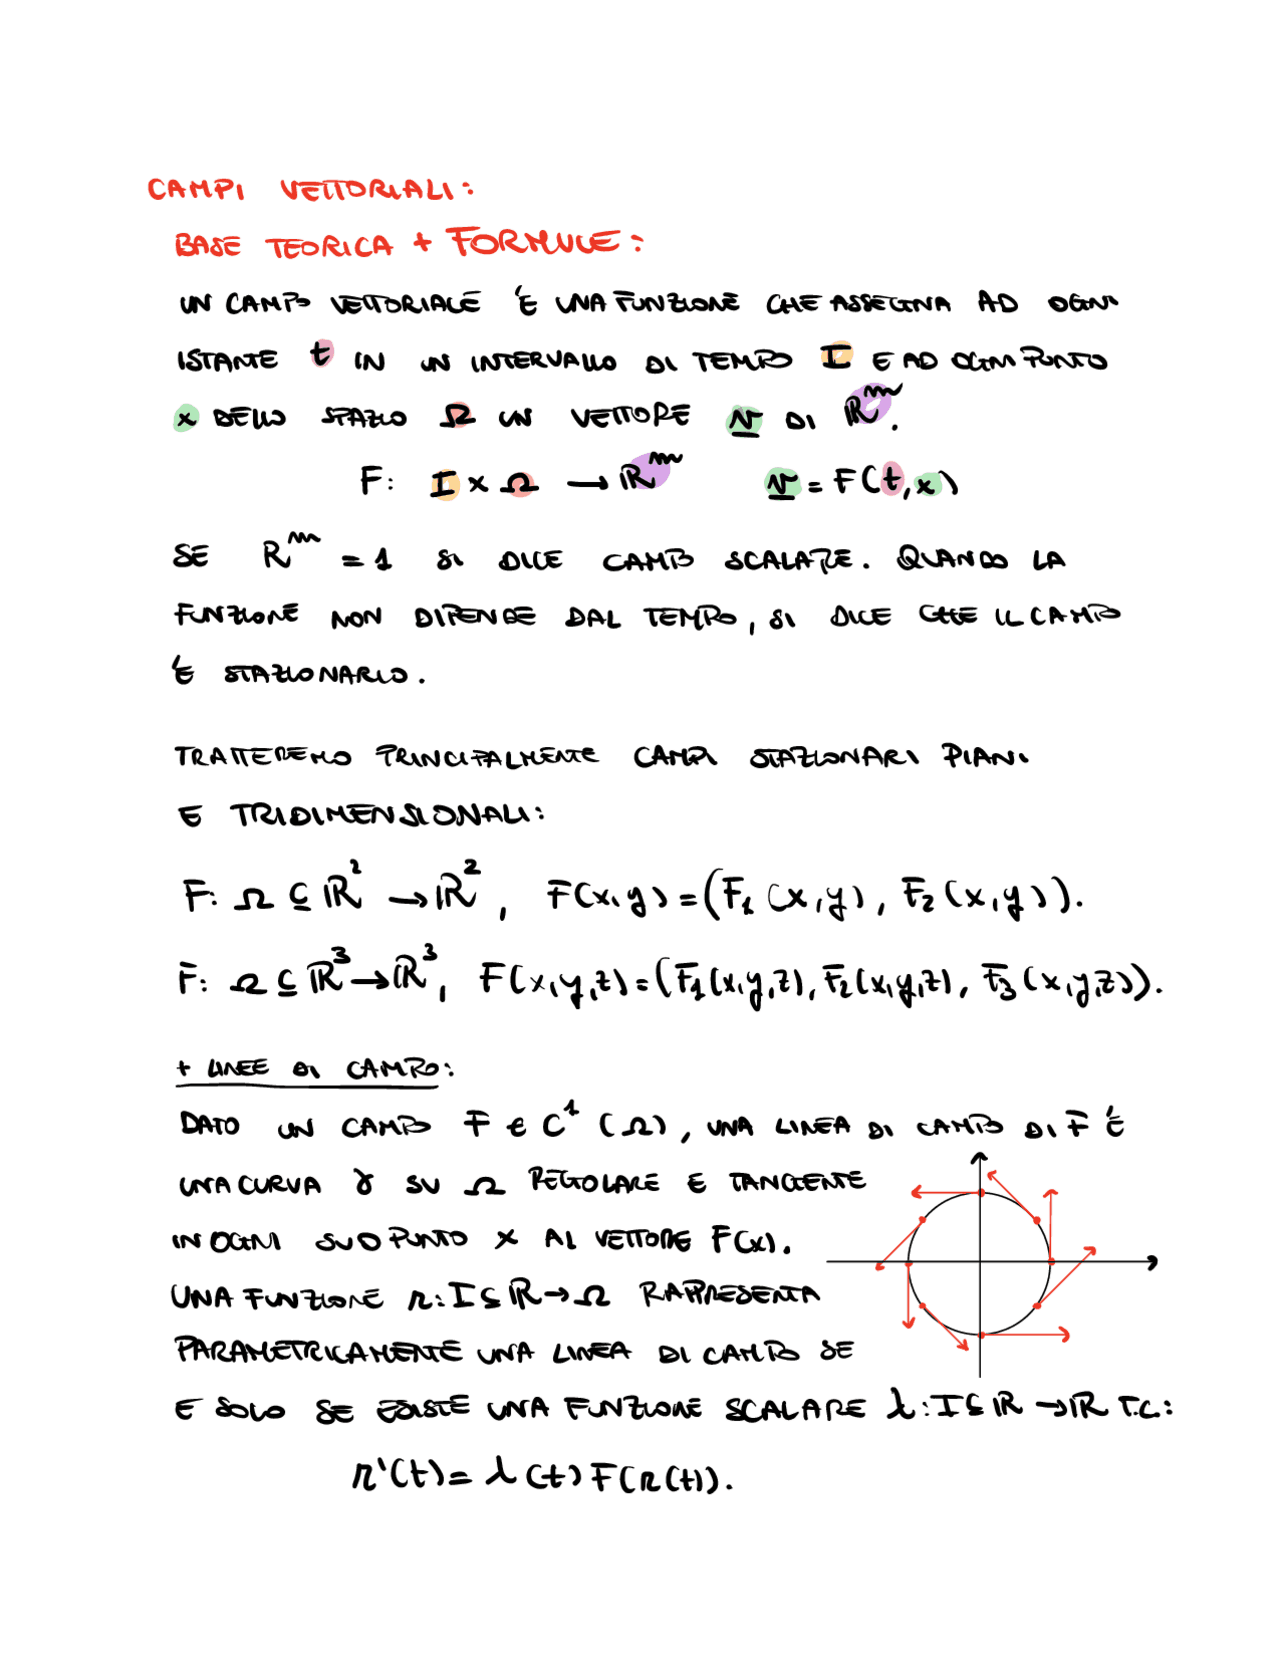 CAMPI VETTORIALI:
BASE TEORICA + FORMULE:
UN CAMPO VETTORIALE È UNA FUNZIONE CHE ASSEGNA AD OGNI
ISTANTE t IN UN INTERVALLO DI TEMPO I E AD OGNI PUNTO
x DELLO SPAZIO Ω UN VETTORE v DI ℝᵐ.
F: I × Ω → ℝᵐ v = F(t,x)
SE ℝᵐ = 1 SI DICE CAMPO SCALARE. QUANDO LA
FUNZIONE NON DIPENDE DAL TEMPO, SI DICE CHE IL CAMPO
È STAZIONARIO.
TRATTEREMO PRINCIPALMENTE CAMPI STAZIONARI PIANI
E TRIDIMENSIONALI:
F: Ω ⊆ ℝ² → ℝ², F(x,y) = (F₁(x,y), F₂(x,y)).
F: Ω ⊆ ℝ³ → ℝ³, F(x,y,z) = (F₁(x,y,z), F₂(x,y,z), F₃(x,y,z)).
+ LINEE DI CAMPO:
DATO UN CAMPO F ∈ C¹(Ω), UNA LINEA DI CAMPO DI F È
UNA CURVA γ SU Ω REGOLARE E TANGENTE
IN OGNI SUO PUNTO x AL VETTORE F(x).
UNA FUNZIONE r: I ⊆ ℝ → Ω RAPPRESENTA
PARAMETRICAMENTE UNA LINEA DI CAMPO SE
E SOLO SE ESISTE UNA FUNZIONE SCALARE λ: I ⊆ ℝ → ℝ T.C.:
r'(t) = λ(t) F(r(t)).